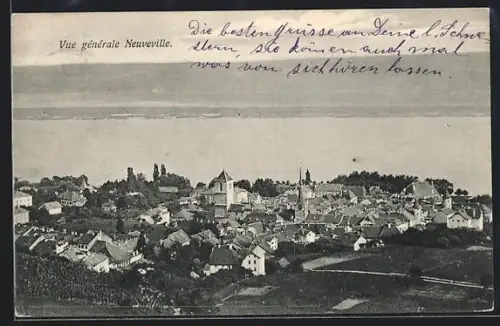 Vue générale Neuveville.
Die besten Grüsse an Deine l. Schwe
stern, sie können auch mal
was von sich hören lassen.